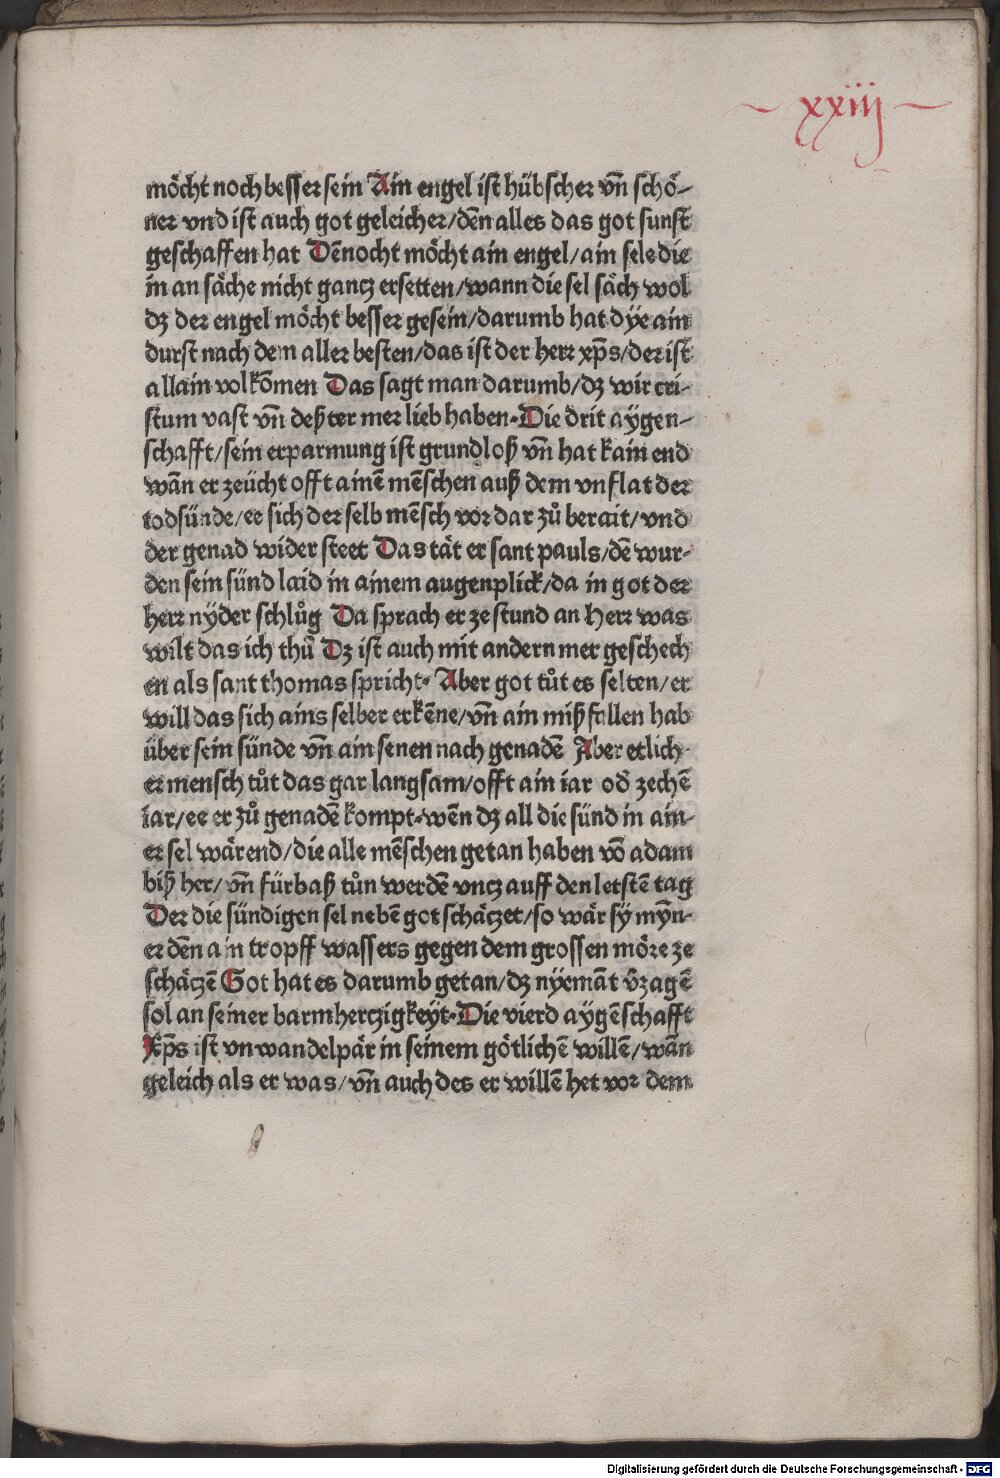 xxiij
möcht noch besser sein Ain engel ist hübscher vn̄ schö-
ner vnd ist auch got geleicher/den̄ alles das got sunst
geschaffen hat Dēnocht möcht ain engel/ain sele die
in an säche nicht gantz ersetten/wann die sel säch wol
dz der engel möcht besser gesein/darumb hat dÿe ain
durst nach dem aller besten/das ist der herr xp̄s/der ist
allain volkōmen Das sagt man darumb/dz wir cri-
stum vast vn̄ deßter mer lieb haben. Die drit aÿgen-
schafft/sein erparmung ist grundloß vn̄ hat kain end
wān er zeücht offt ainē mēschen auß dem vnflat der
todsünde/ee sich der selb mēsch vor dar zů berait/vnd
der genad wider steet Das tät er sant pauls/dē wur-
den sein sünd laid in ainem augenplick/da in got der
herr nÿder schlůg Da sprach er ze stund an Herr was
wilt das ich thů Dz ist auch mit andern mer geschech
en als sant thomas spricht. Aber got tůt es selten/er
will das sich ains selber erkēne/vn̄ ain mißfallen hab
über sein sünde vn̄ ain senen nach genadē Aber etlich
er mensch tůt das gar langsam/offt ain iar od̄ zechē
iar/ee er zů genadē kompt. wēn dz all die sünd in ain-
er sel wärend/die alle mēschen getan haben vō adam
biß her/vn̄ fürbaß tůn werdē vncz auff den letstē tag
Der die sündigen sel nebē got schäczet/so wär sÿ mȳn-
er dēn ain tropff wassers gegen dem grossen möre ze
schäczē Got hat es darumb getan/dz nÿemāt v̄zagē
sol an seiner barmherczigkeÿt. Die vierd aÿgēschafft
Xp̄s ist vnwandelpär in seinem götlichē willē/wān
geleich als er was/vn̄ auch des er willē het vor dem
Digitalisierung gefördert durch die Deutsche Forschungsgemeinschaft - DFG